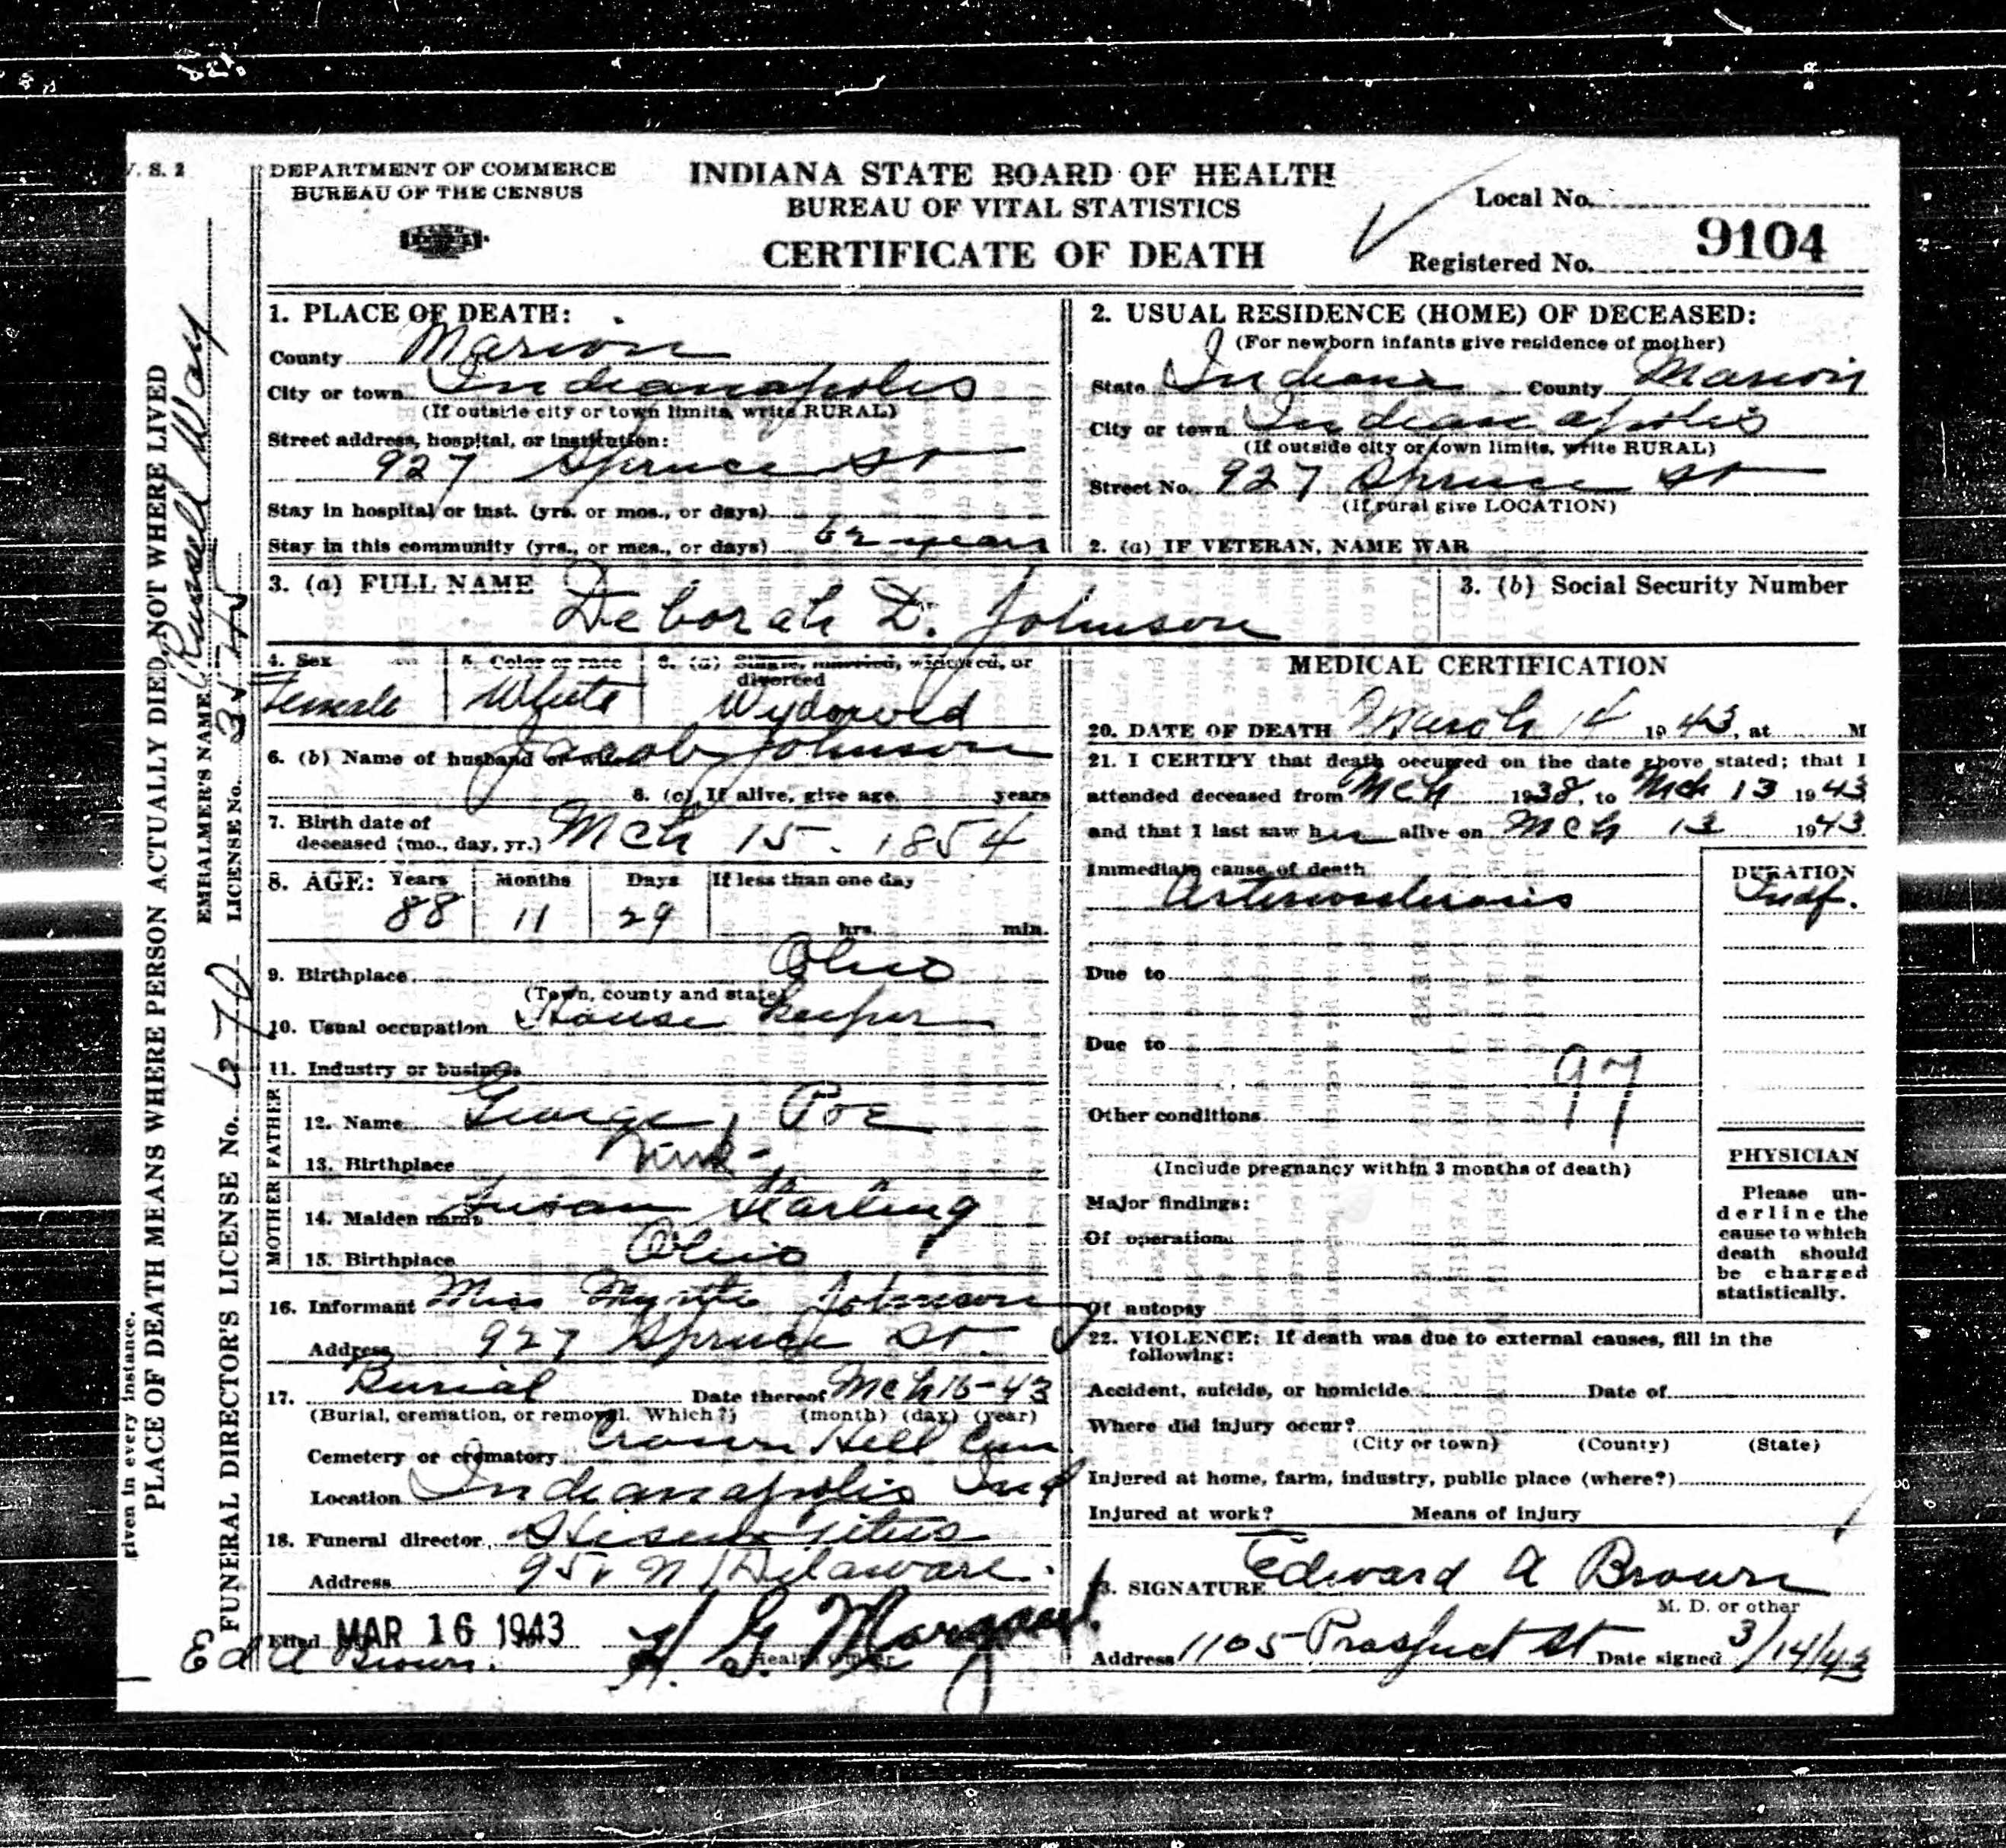 V. S. 2
DEPARTMENT OF COMMERCE
BUREAU OF THE CENSUS
INDIANA STATE BOARD OF HEALTH
BUREAU OF VITAL STATISTICS
CERTIFICATE OF DEATH
Local No.
Registered No. 9104
1. PLACE OF DEATH:
County Marion
City or town Indianapolis
(If outside city or town limits, write RURAL)
Street address, hospital, or institution:
927 Spruce St
Stay in hospital or inst. (yrs. or mos., or days)
Stay in this community (yrs., or mos., or days) 62 years
2. USUAL RESIDENCE (HOME) OF DECEASED:
(For newborn infants give residence of mother)
State Indiana County Marion
City or town Indianapolis
(If outside city or town limits, write RURAL)
Street No. 927 Spruce St
(If rural give LOCATION)
2. (a) IF VETERAN, NAME WAR
3. (a) FULL NAME Deborah D. Johnson
3. (b) Social Security Number
4. Sex Female
5. Color or race White
6. (a) Single, married, widowed, or divorced Wydowed
6. (b) Name of husband or wife Jacob Johnson
6. (c) If alive, give age years
7. Birth date of deceased (mo., day, yr.) Mch 15. 1854
8. AGE: Years 88 Months 11 Days 29 If less than one day hrs. min.
9. Birthplace Ohio
(Town, county and state)
10. Usual occupation House keeper
11. Industry or business
FATHER
12. Name George Poe
13. Birthplace
MOTHER
14. Maiden name Susan Starling
15. Birthplace Ohio
16. Informant Miss Myrtle Johnson
Address 927 Spruce St.
17. Burial Date thereof Mch 16-43
(Burial, cremation, or removal. Which?) (month) (day) (year)
Cemetery or crematory Crown Hill Cem
Location Indianapolis Ind
18. Funeral director Hisey Titus
Address 951 N Delaware.
Filed MAR 16 1943 H G Morgan
Health Officer
Ed A Brown.
MEDICAL CERTIFICATION
20. DATE OF DEATH March 14 1943, at M
21. I CERTIFY that death occurred on the date above stated; that I
attended deceased from Mch 1938, to Mch 13 1943
and that I last saw her alive on Mch 13 1943
Immediate cause of death
Arteriosclerosis
DURATION
Indf.
Due to
Due to
97
Other conditions
(Include pregnancy within 3 months of death)
Major findings:
Of operations
Of autopsy
PHYSICIAN
Please un-
derline the
cause to which
death should
be charged
statistically.
22. VIOLENCE: If death was due to external causes, fill in the
following:
Accident, suicide, or homicide Date of
Where did injury occur?
(City or town) (County) (State)
Injured at home, farm, industry, public place (where?)
Injured at work? Means of injury
23. SIGNATURE Edward A Brown
M. D. or other
Address 1105 Prospect St Date signed 3/14/43
given in every instance.
PLACE OF DEATH MEANS WHERE PERSON ACTUALLY DIED, NOT WHERE LIVED
EMBALMER'S NAME Russell Way
LICENSE No.
FUNERAL DIRECTOR'S LICENSE No. 670